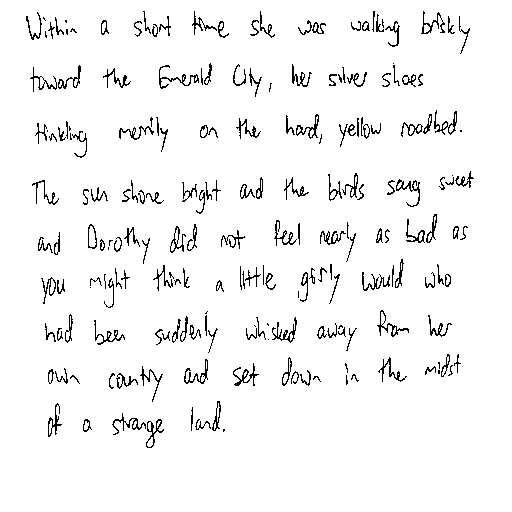 Within a short time she was walking briskly
toward the Emerald City, her silver shoes
tinkling merrily on the hard, yellow roadbed.
The sun shone bright and the birds sang sweet
and Dorothy did not feel nearly as bad as
you might think a little girly would who
had been suddenly whisked away from her
own country and set down in the midst
of a strange land.